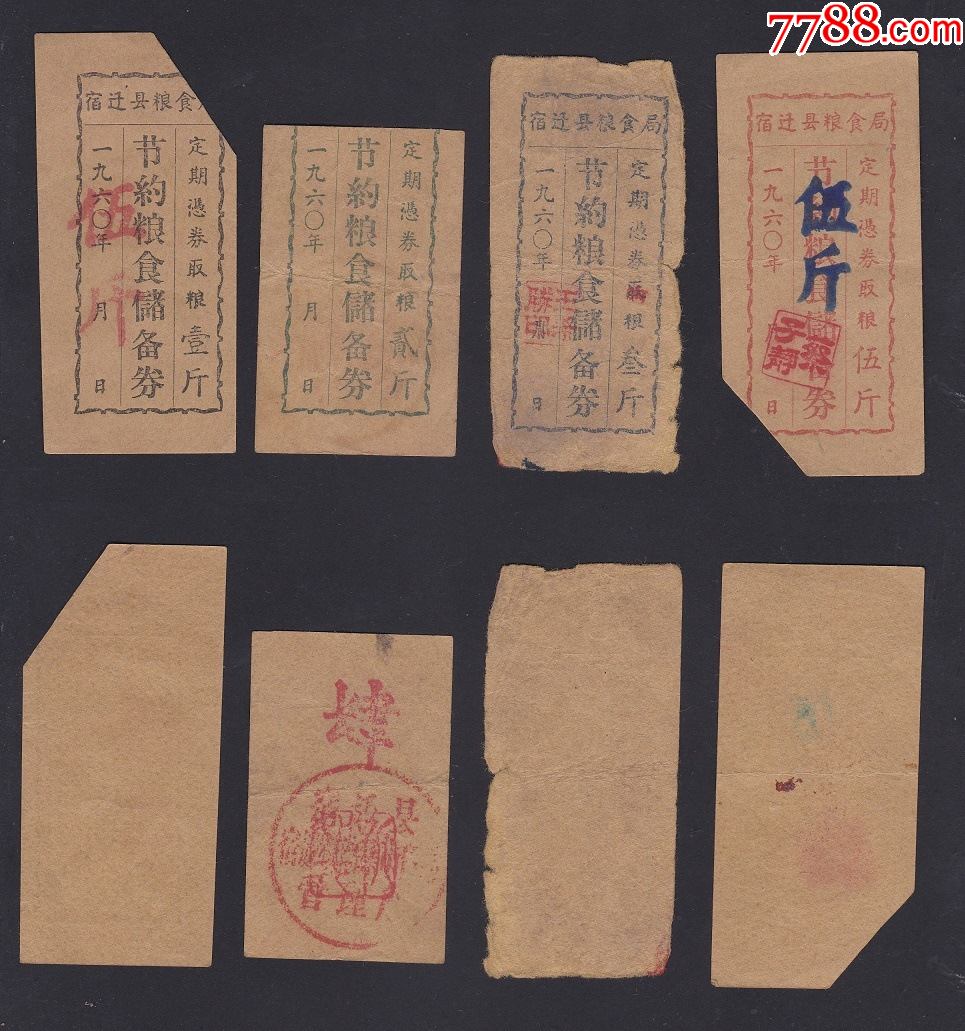 7788.com
宿迁县粮食局
定期憑券取粮壹斤
节約粮食儲备券
一九六〇年 月 日
伍斤
定期憑券取粮貳斤
节約粮食儲备券
一九六〇年 月 日
宿迁县粮食局
定期憑券 粮叁斤
节約粮食儲备券
一九六〇年 日
宿迁县粮食局
定期憑券取粮伍斤
节 粮食儲备券
一九六〇年 日
伍斤
肆
县